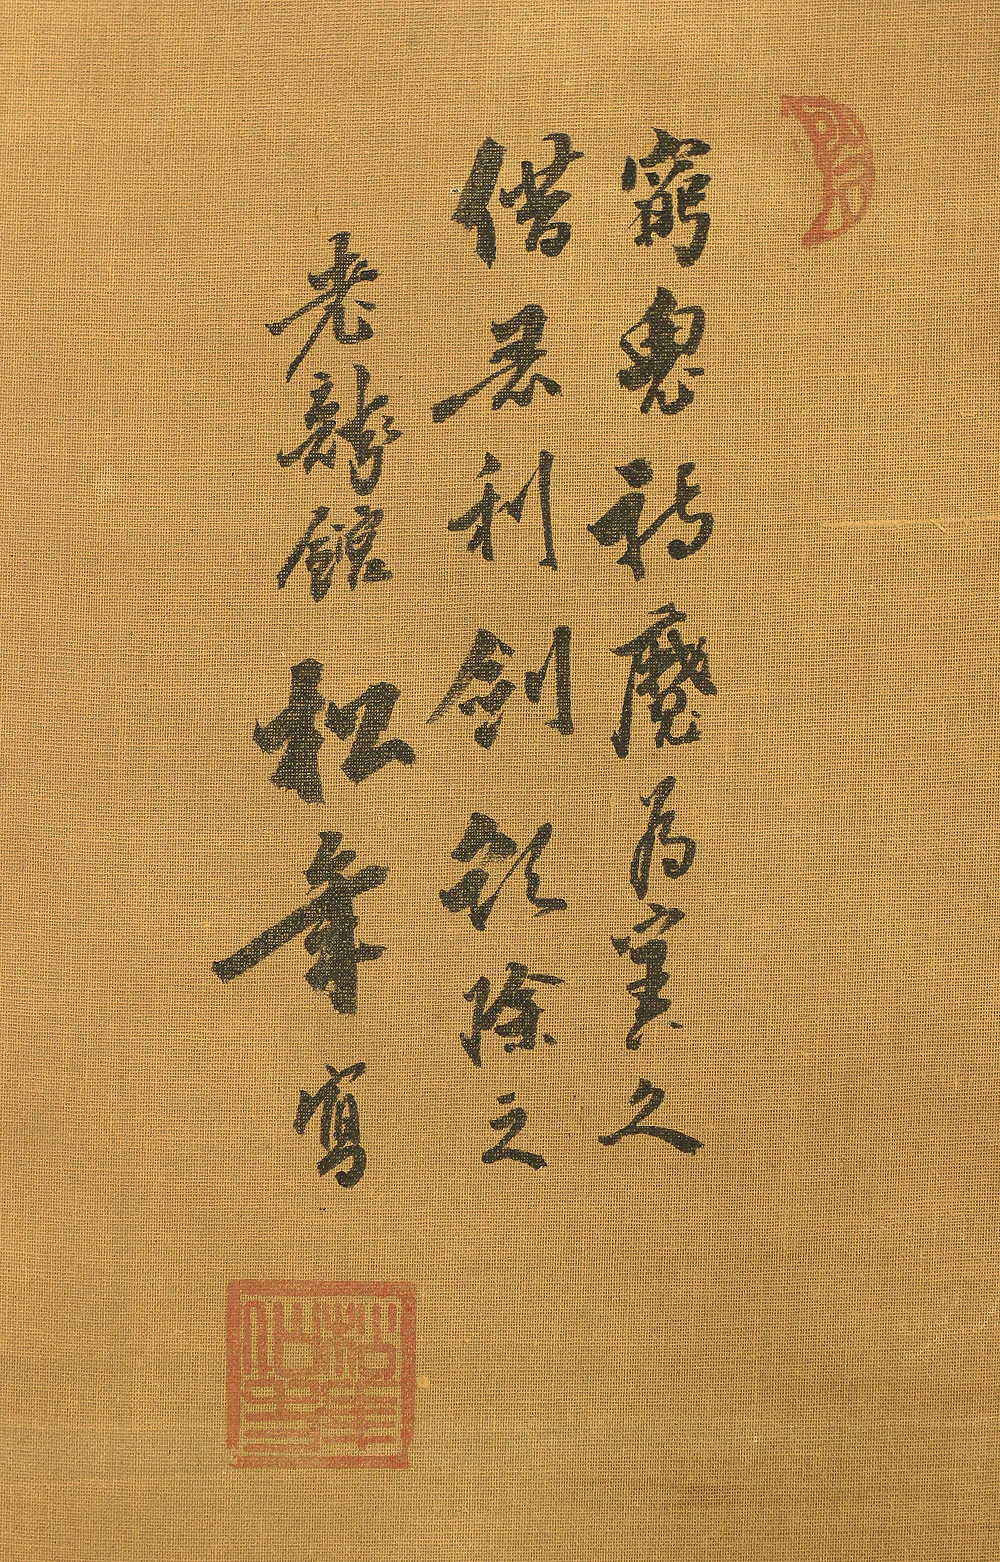 窮鬼禍魔為害久
借君利劍欲除之
老龍館松年寫